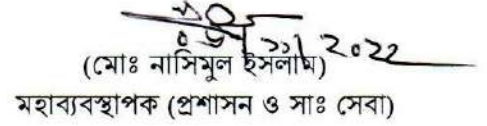 (মোঃ নাসিমুল ইসলাম)
মহাব্যবস্থাপক (প্রশাসন ও সাঃ সেবা)